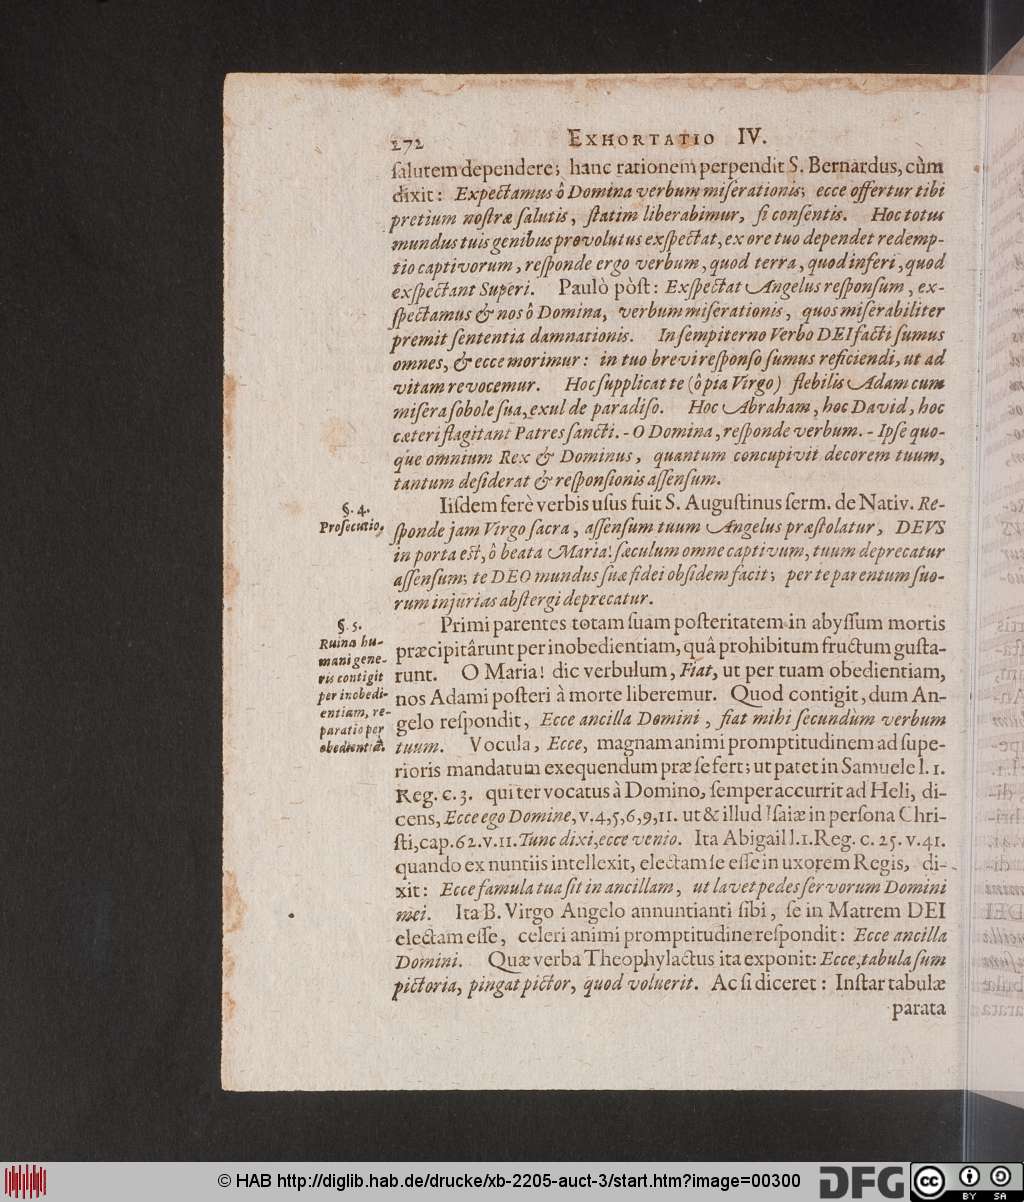 272 EXHORTATIO IV.
ſalutem dependere; hanc rationem perpendit S. Bernardus, cùm
dixit: Expectamus ô Domina verbum miſerationis; ecce offertur tibi
pretium noſtræ ſalutis, ſtatim liberabimur, ſi conſentis. Hoc totus
mundus tuis genibus provolutus exſpectat, ex ore tuo dependet redemp-
tio captivorum, reſponde ergo verbum, quod terra, quod inferi, quod
exſpectant Superi. Paulò pòſt: Exſpectat Angelus reſponſum, ex-
ſpectamus & nos ô Domina, verbum miſerationis, quos miſerabiliter
premit ſententia damnationis. In ſempiterno Verbo DEI facti ſumus
omnes, & ecce morimur: in tuo brevi reſponſo ſumus reficiendi, ut ad
vitam revocemur. Hoc ſupplicat te (ô pia Virgo) flebilis Adam cum
miſera ſobole ſua, exul de paradiſo. Hoc Abraham, hoc David, hoc
cæteri flagitant Patres ſancti. - O Domina, reſponde verbum. - Ipſe quo-
que omnium Rex & Dominus, quantum concupivit decorem tuum,
tantum deſiderat & reſponſionis aſſenſum.
§. 4.
Proſecutio.
Iiſdem ferè verbis uſus fuit S. Auguſtinus ſerm. de Nativ. Re-
ſponde jam Virgo ſacra, aſſenſum tuum Angelus præſtolatur, DEVS
in porta eſt, ô beata Maria! ſæculum omne captivum, tuum deprecatur
aſſenſum; te DEO mundus ſuæ fidei obſidem facit; per te parentum ſuo-
rum injurias abſtergi deprecatur.
§. 5.
Ruina hu-
mani gene-
ris contigit
per inobedi-
entiam, re-
paratio per
obedientiā.
Primi parentes totam ſuam poſteritatem in abyſſum mortis
præcipitârunt per inobedientiam, quâ prohibitum fructum guſta-
runt. O Maria! dic verbulum, Fiat, ut per tuam obedientiam,
nos Adami poſteri à morte liberemur. Quod contigit, dum An-
gelo reſpondit, Ecce ancilla Domini, fiat mihi ſecundùm verbum
tuum. Vocula, Ecce, magnam animi promptitudinem ad ſupe-
rioris mandatum exequendum præ ſe fert; ut patet in Samuele l. 1.
Reg. c. 3. qui ter vocatus à Domino, ſemper accurrit ad Heli, di-
cens, Ecce ego Domine, v. 4, 5, 6, 9, 11. ut & illud Iſaiæ in perſona Chri-
ſti, cap. 62. v. 11. Tunc dixi, ecce venio. Ita Abigail l. 1. Reg. c. 25. v. 41.
quando ex nuntiis intellexit, electam ſe eſſe in uxorem Regis, di-
xit: Ecce famula tua ſit in ancillam, ut lavet pedes ſervorum Domini
mei. Ita B. Virgo Angelo annuntianti ſibi, ſe in Matrem DEI
electam eſſe, celeri animi promptitudine reſpondit: Ecce ancilla
Domini. Quæ verba Theophylactus ita exponit: Ecce, tabula ſum
pictoria, pingat pictor, quod voluerit. Ac ſi diceret: Inſtar tabulæ
parata
© HAB http://diglib.hab.de/drucke/xb-2205-auct-3/start.htm?image=00300
DFG
cc BY SA